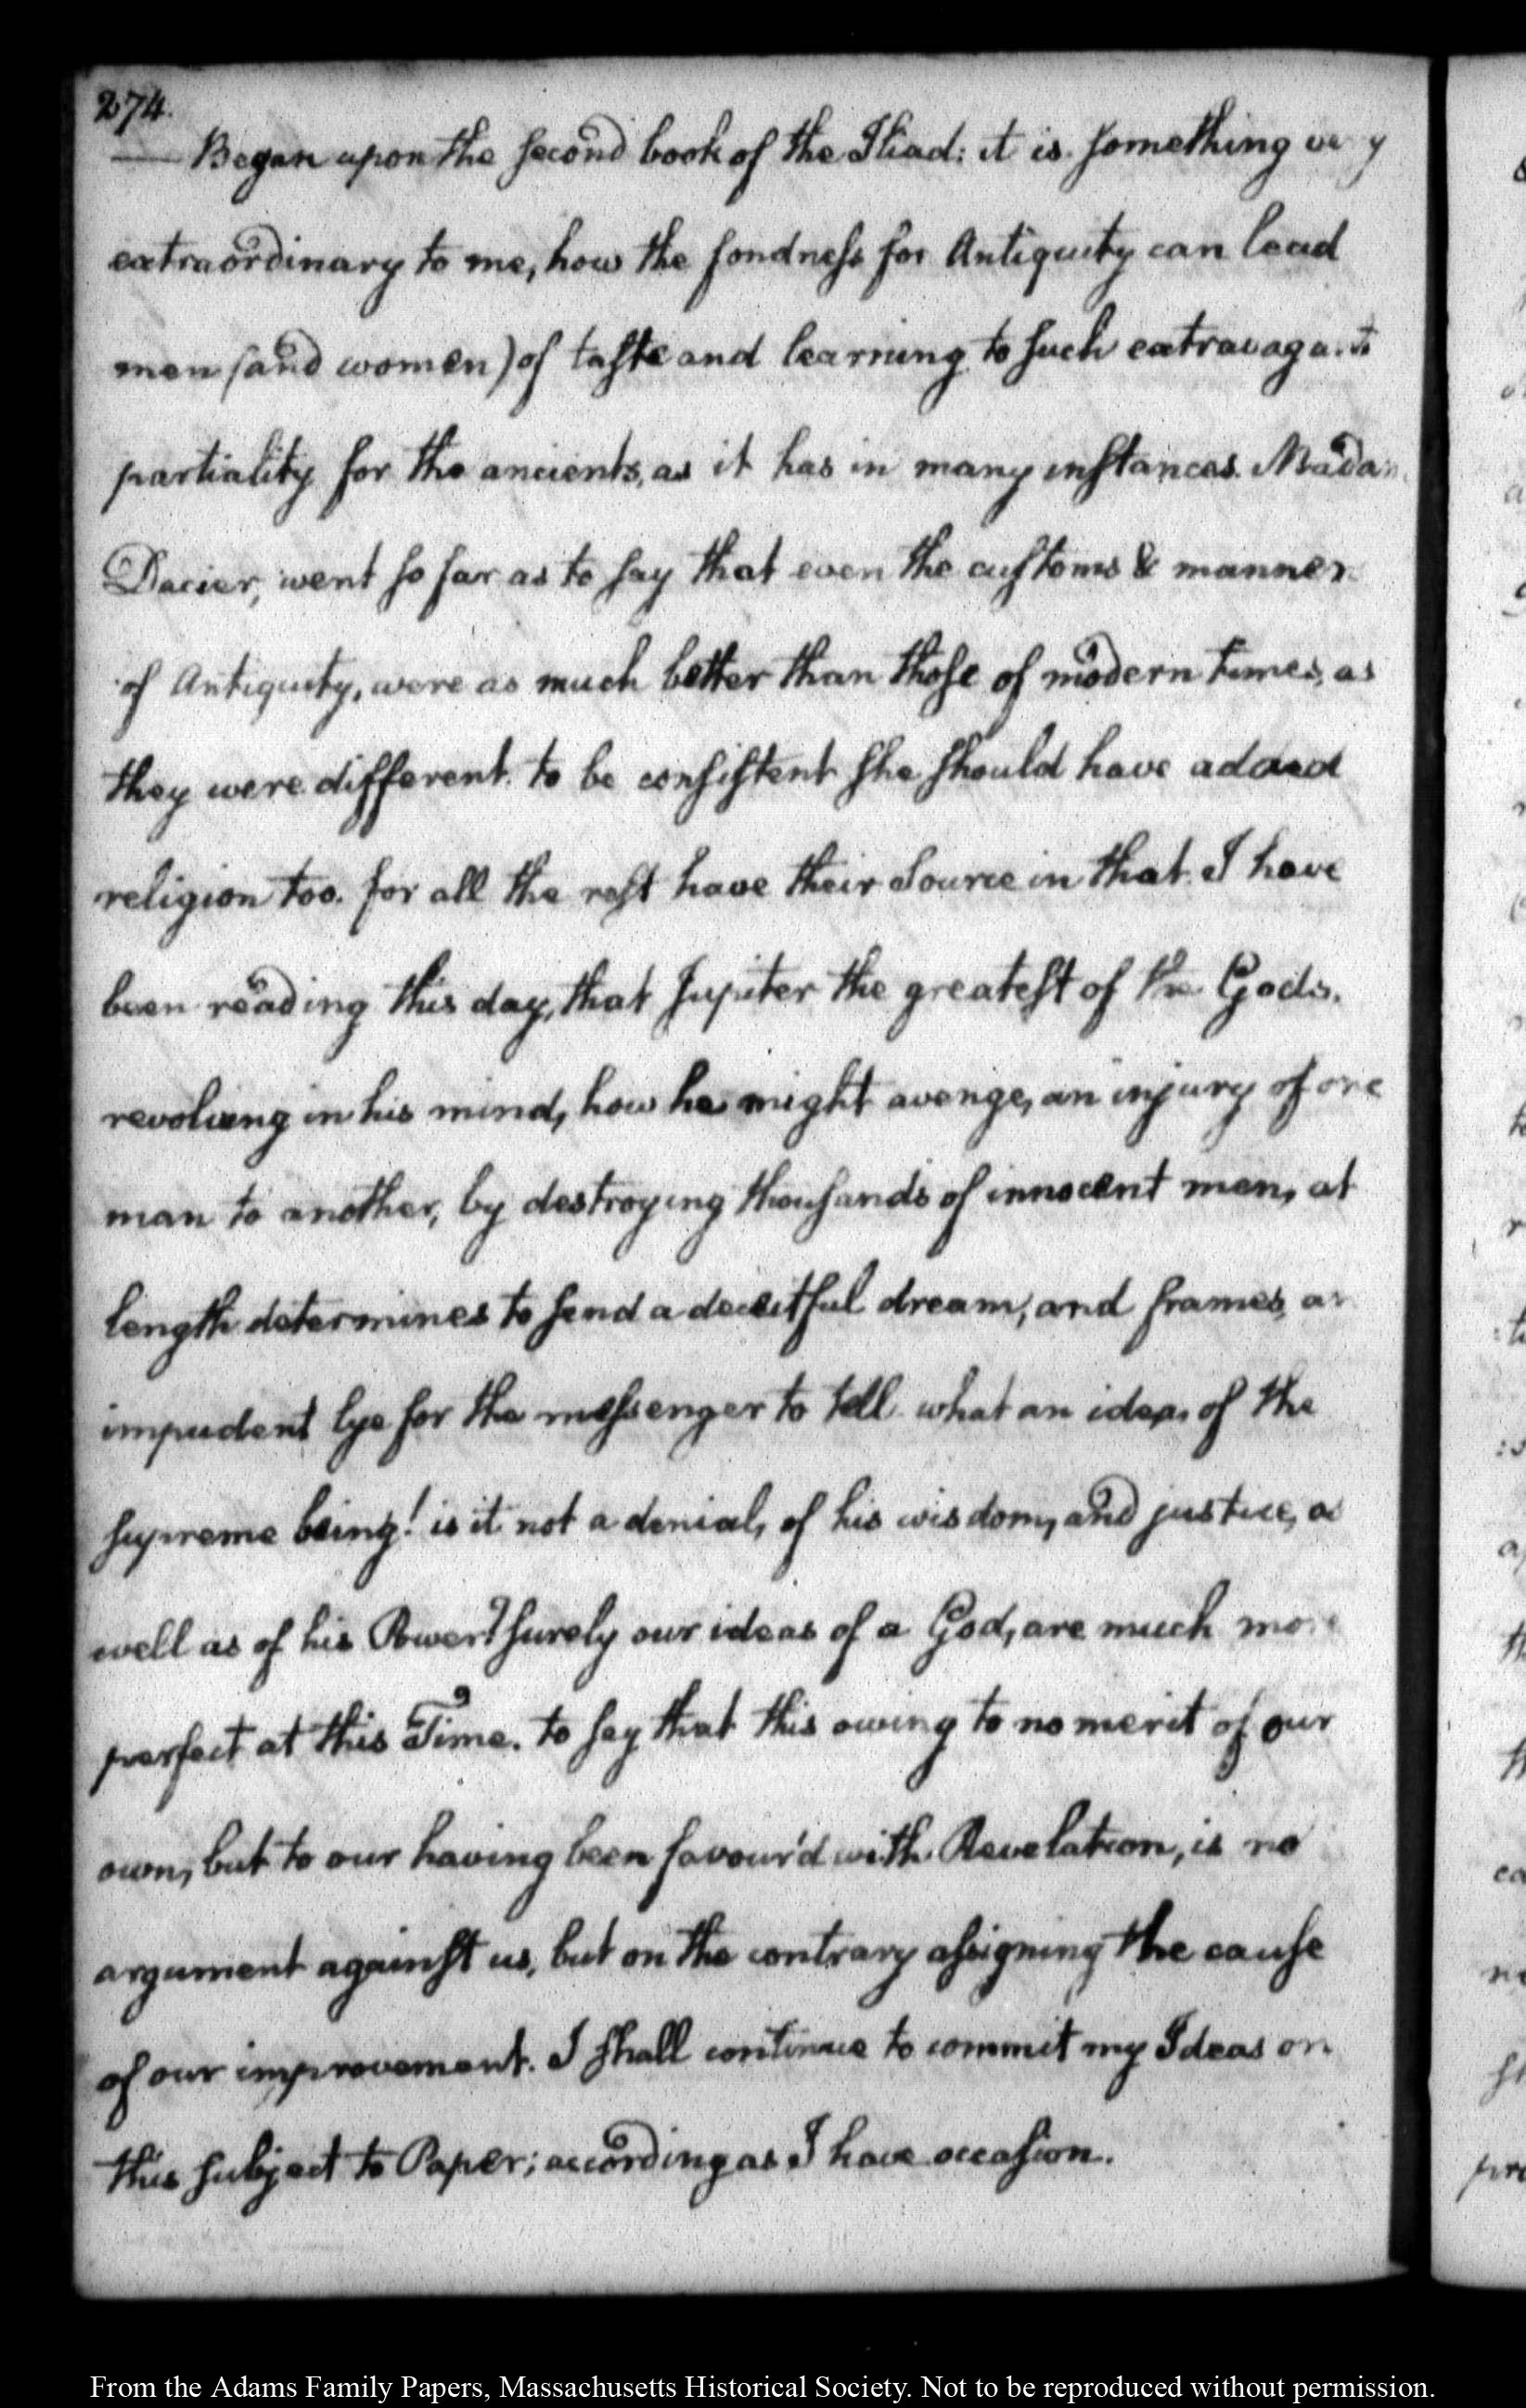 274.
— Began upon the second book of the Iliad: it is something very
extraordinary to me, how the fondness for Antiquity can lead
men (and women) of taste and learning to such extravagant
partiality for the ancients, as it has in many instances. Madam
Dacier, went so far as to say that even the customs & manners
of Antiquity, were as much better than those of modern times, as
they were different. to be consistent she should have added
religion too. for all the rest have their Source in that. I have
been reading this day, that Jupiter the greatest of the Gods,
revolving in his mind, how he might avenge, an injury of one
man to another, by destroying thousands of innocent men, at
length determines to send a deceitful dream, and frames, an
impudent lye for the messenger to tell. what an idea, of the
supreme being! is it not a denial, of his wisdom, and justice, as
well as of his Power? surely our ideas of a God, are much more
perfect at this Time. to say that this owing to no merit of our
own, but to our having been favour'd with Revelation, is no
argument against us, but on the contrary assigning the cause
of our improvement. I shall continue to commit my Ideas on
this subject to Paper; according as I have occasion.
From the Adams Family Papers, Massachusetts Historical Society. Not to be reproduced without permission.